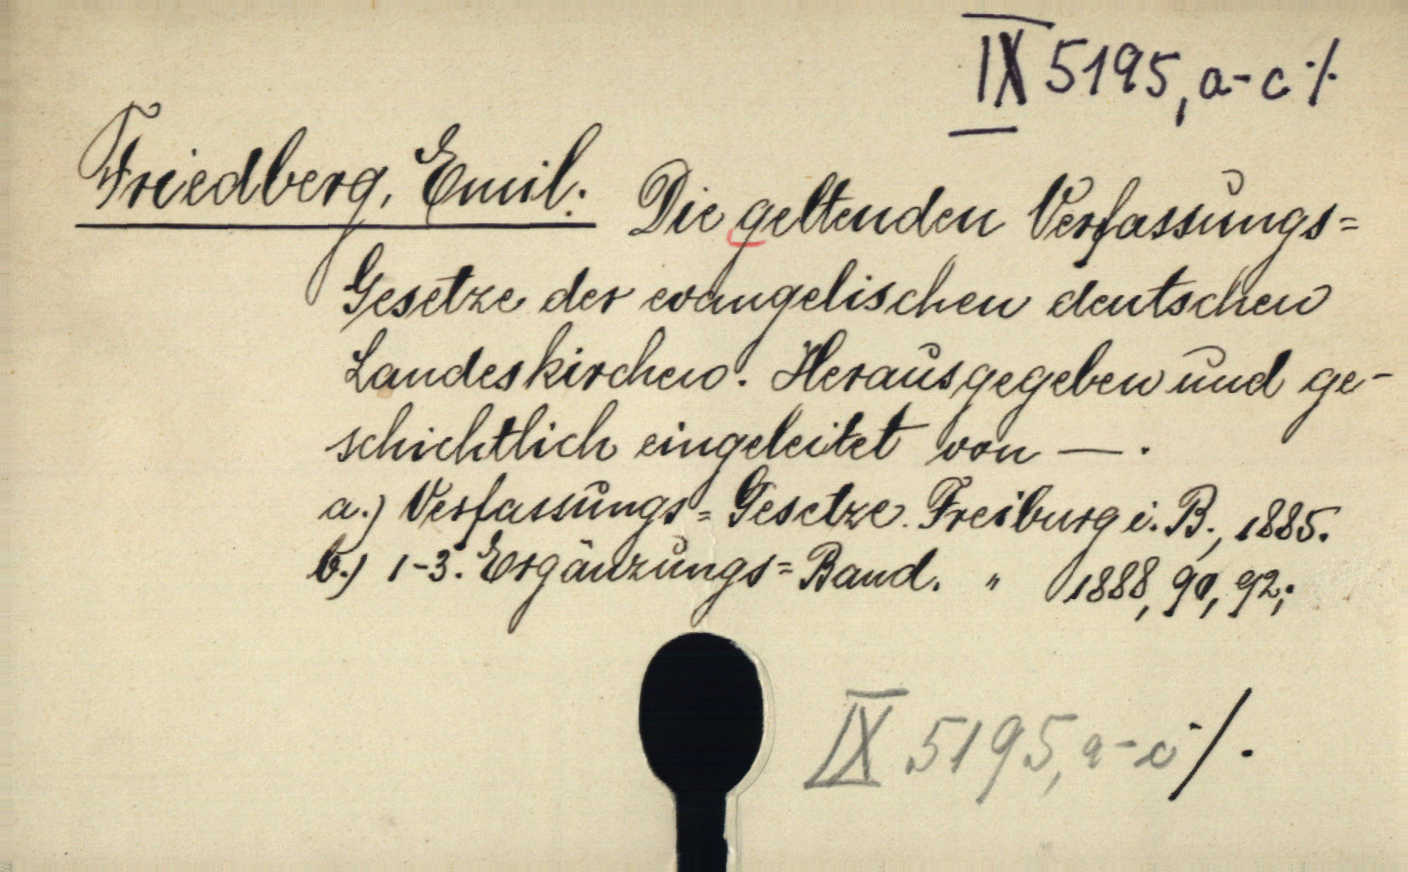 IX 5195, a-c ·/.
Friedberg, Emil: Die geltenden Verfassungs=
Gesetze der evangelischen deutschen
Landeskirchen. Herausgegeben und ge-
schichtlich eingeleitet von — .
a.) Verfassungs=Gesetze. Freiburg i. B., 1885.
b.) 1-3. Ergänzungs=Band. " 1888, 90, 92;
IX 5195, a-c ·/.